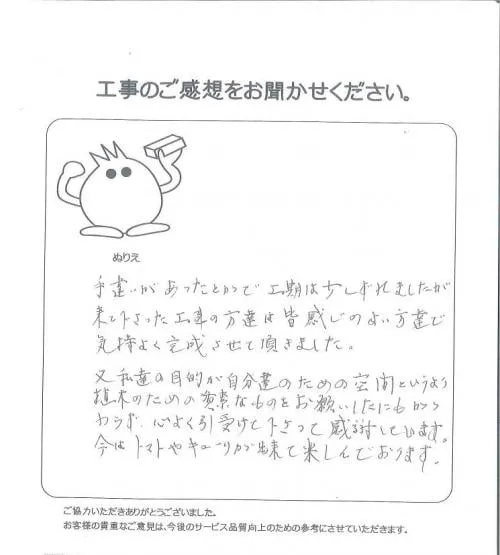 工事のご感想をお聞かせください。
ぬりえ
手違いがあったとかで工期は少しずれましたが
来て下さった工事の方達は皆感じのよい方達で
気持よく完成させて頂きました。
又私達の目的が自分達のための空間というより
植木のための なものをお願いしたにもかかわ
わらず、心よく引受けて下さって感謝しています。
今はトマトやキューリが出来て楽しんでおります。
ご協力いただきありがとうございました。
お客様の貴重なご意見は、今後のサービス品質向上のための参考にさせていただきます。